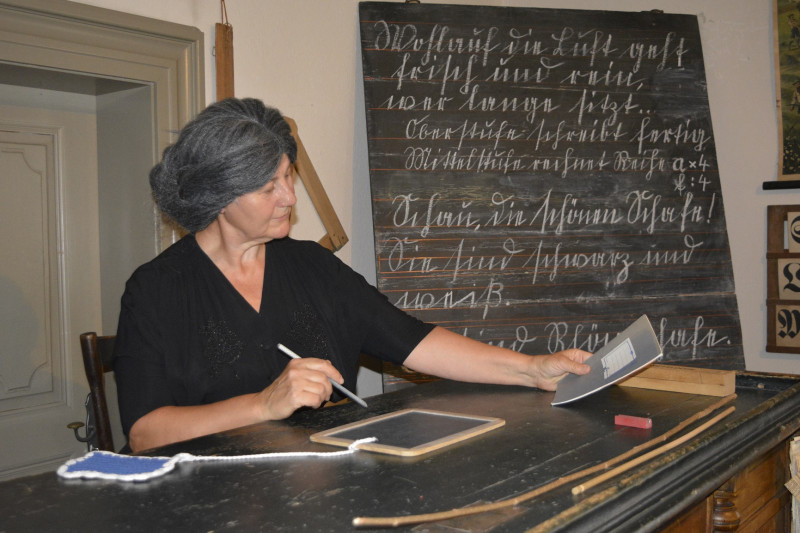 Wohlauf die Luft geht
frisch und rein,
wer lange sitzt..
Oberstufe schreibt fertig
Mittelstufe rechnet Reihe a × 4
: 4
Schau, die schönen Schafe!
Sie sind schwarz und
weiß.
sind Rhönschafe.